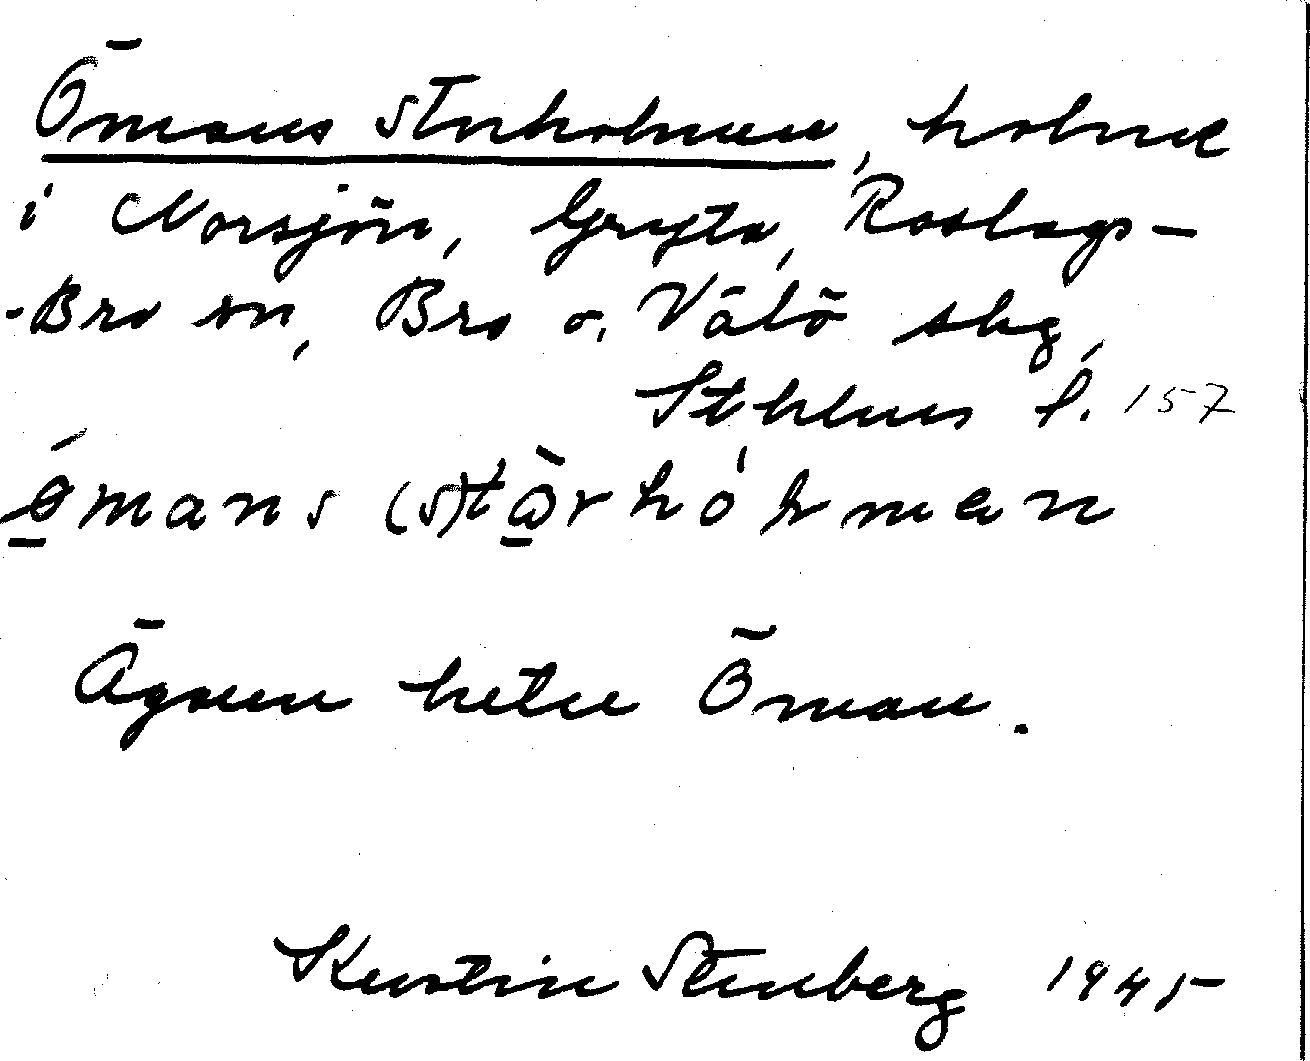 Ömans Storholmen, holme
i Norsjön, Gryta, Roslags-
-Bro sn, Bro o. Vätö skg,
Sthlms l. 157
ömans (s)tọ̄rhólmen
Ägaren heter Öman.
Kerstin Stenberg 1945